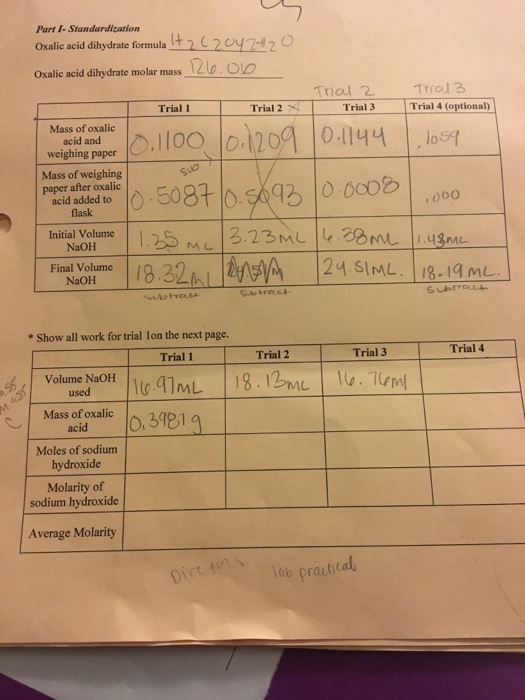 Part I- Standardization
Oxalic acid dihydrate formula H2C2O4·2H2O
Oxalic acid dihydrate molar mass 126.06
Trial 2 Trial 3
Trial 1 Trial 2 X Trial 3 Trial 4 (optional)
Mass of oxalic acid and weighing paper 0.1100 0.1209 0.1144 .1059
sub
Mass of weighing paper after oxalic acid added to flask 0.5087 0.5093 0.0008 .000
Initial Volume NaOH 1.35 mL 3.23mL 6.38mL 1.43mL
Final Volume NaOH 18.32ml 24.51mL. 18.19mL.
subtract subtract subtract
* Show all work for trial 1on the next page.
Trial 1 Trial 2 Trial 3 Trial 4
Volume NaOH used 16.97mL 18.13mL 16.76ml
mass
Mass of oxalic acid 0.3981g
Moles of sodium hydroxide
Molarity of sodium hydroxide
Average Molarity
lab practical